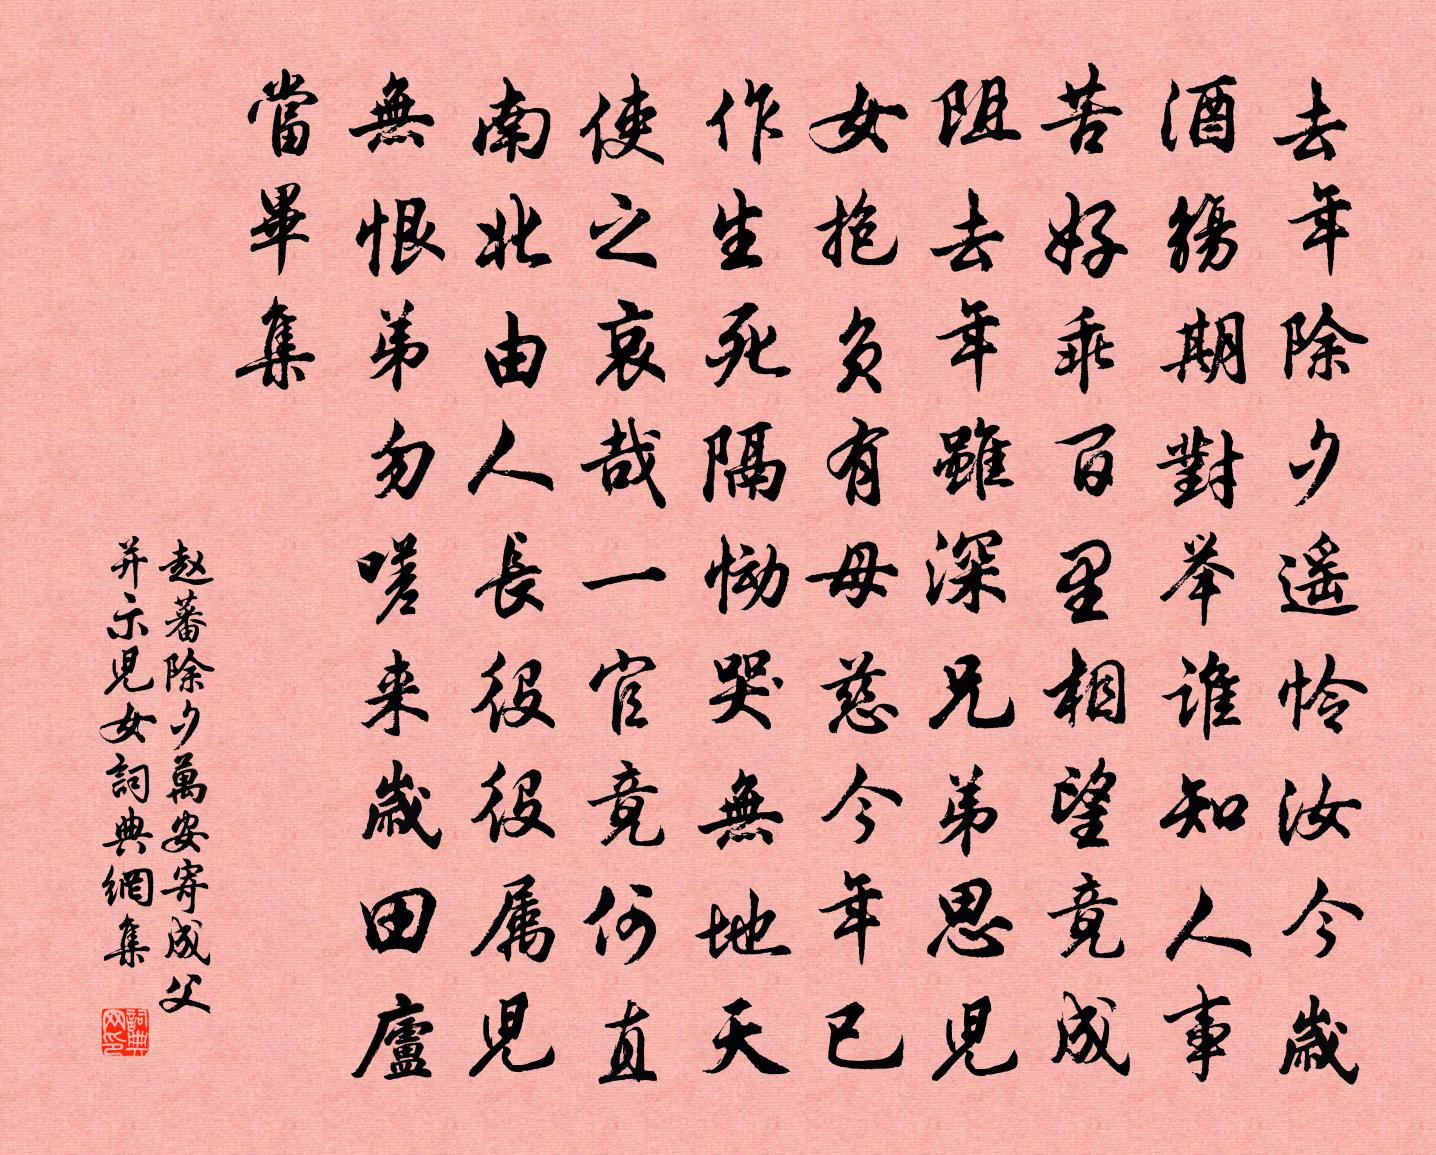 去年除夕遥怜汝今歲
酒觴期對举谁知人事
苦好乖百里相望竟成
阻去年雖深兄弟思児
女抱负有母慈今年已
作生死隔恸哭無地天
使之哀哉一官竟何直
南北由人長役役属児
無恨弟勿嗟来歲田廬
當畢集
赵蕃除夕萬安寄成父
并示児女詞典網集
詞典网印